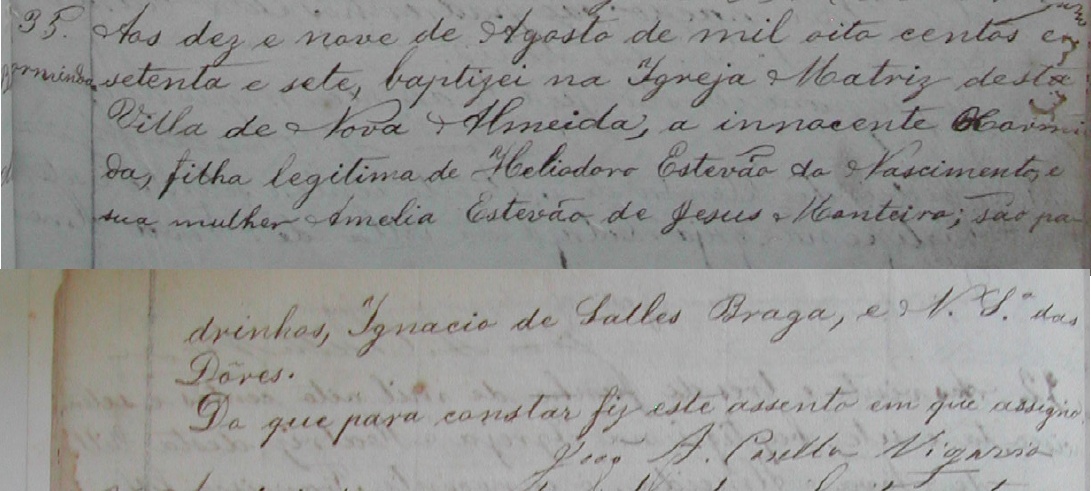 35. Aos dez e nove de Agosto de mil oito centos e
setenta e sete, baptizei na Igreja Matriz desta
Villa de Nova Almeida, a innocente
da, filha legitima de Heliodoro Estevão do Nascimento, e
sua mulher Amelia Estevão de Jesus Monteiro; são pa-
drinhos, Ignacio de Salles Braga, e N. S.ª das
Dôres.
Do que para constar fiz este assento em que assigno
João A. Vigario